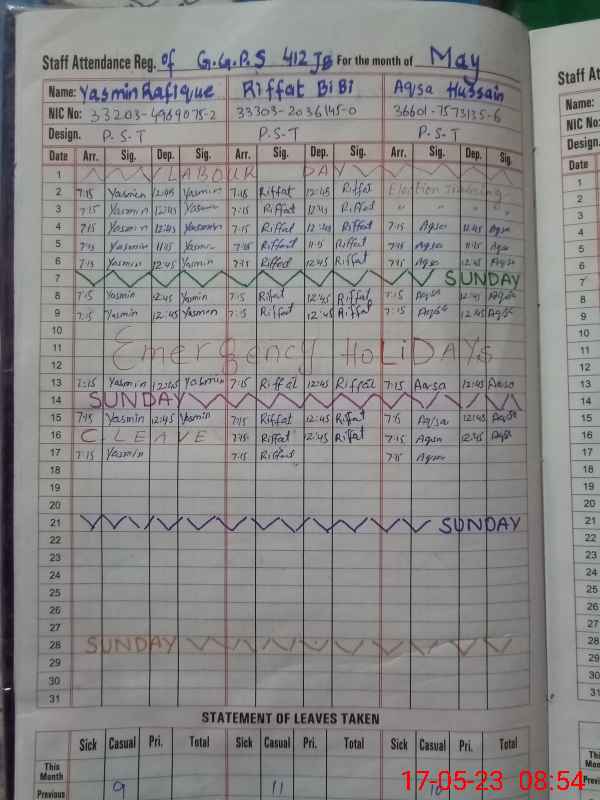 Staff Attendance Reg. of G.G.P.S 412 JB For the month of May
Name: Yasmin Rafique Riffat BiBi Aqsa Hussain
NIC No: 33203-4969075-2 33303-2036145-0 36601-7573135-6
Design. P.S.T P.S.T P.S.T
Date Arr. Sig. Dep. Sig. Arr. Sig. Dep. Sig. Arr. Sig. Dep. Sig.
1 LABOUR DAY
2 7:15 Yasmin 12:45 Yasmin 7:15 Riffat 12:45 Riffat Election Training
3 7:15 Yasmin 12:45 Yasmin 7:15 Riffat 12:45 Riffat " " " "
4 7:15 Yasmin 12:45 Yasmin 7:15 Riffat 12:45 Riffat 7:15 Aqsa 12:45 Aqsa
5 7:15 Yasmin 11:15 Yasmin 7:15 Riffat 11:15 Riffat 7:15 Aqsa 11:15 Aqsa
6 7:15 Yasmin 12:45 Yasmin 7:15 Riffat 12:45 Riffat 7:15 Aqsa 12:45 Aqsa
7 SUNDAY
8 7:15 Yasmin 12:45 Yasmin 7:15 Riffat 12:45 Riffat 7:15 Aqsa 12:45 Aqsa
9 7:15 Yasmin 12:45 Yasmin 7:15 Riffat 12:45 Riffat 7:15 Aqsa 12:45 Aqsa
10
11 Emergency HoLiDAYs
12
13 7:15 Yasmin 12:45 Yasmin 7:15 Riffat 12:45 Riffat 7:15 Aqsa 12:45 Aqsa
14 SUNDAY
15 7:15 Yasmin 12:45 Yasmin 7:15 Riffat 12:45 Riffat 7:15 Aqsa 12:45 Aqsa
16 C. LEAVE 7:15 Riffat 12:45 Riffat 7:15 Aqsa 12:45 Aqsa
17 7:15 Yasmin 7:15 Riffat 7:15 Aqsa
18
19
20
21 SUNDAY
22
23
24
25
26
27
28 SUNDAY
29
30
31
STATEMENT OF LEAVES TAKEN
Sick Casual Pri. Total Sick Casual Pri. Total Sick Casual Pri. Total
This Month
Previous 9 11 10
17-05-23 08:54
Staff At
Name:
NIC No:
Design.
Date Arr.
1
2
3
4
5
6
7
8
9
10
11
12
13
14
15
16
17
18
19
20
21
22
23
24
25
26
27
28
29
30
31
This Month